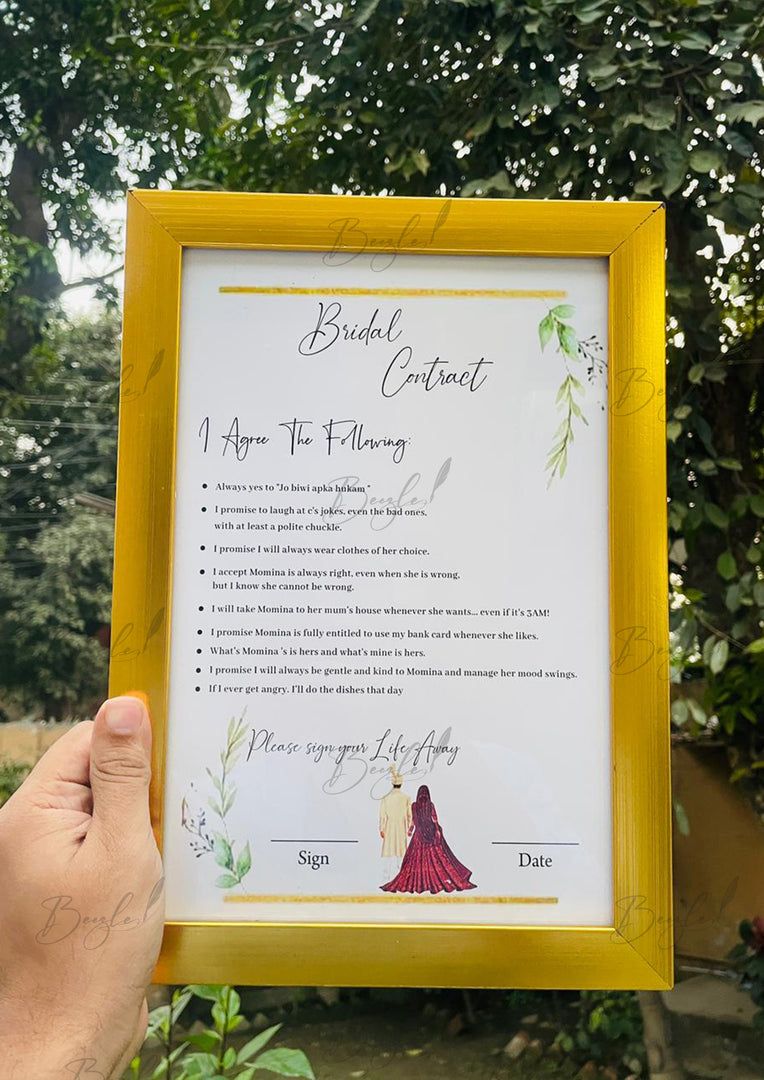 Bridal
Contract
I Agree The Following:
• Always yes to "Jo biwi apka hukam "
• I promise to laugh at e's jokes, even the bad ones,
with at least a polite chuckle.
• I promise I will always wear clothes of her choice.
• I accept Momina is always right, even when she is wrong,
but I know she cannot be wrong.
• I will take Momina to her mum's house whenever she wants... even if it's 3AM!
• I promise Momina is fully entitled to use my bank card whenever she likes.
• What's Momina 's is hers and what's mine is hers.
• I promise I will always be gentle and kind to Momina and manage her mood swings.
• If I ever get angry. I'll do the dishes that day
Please sign your Life Away
Sign
Date
Beezle